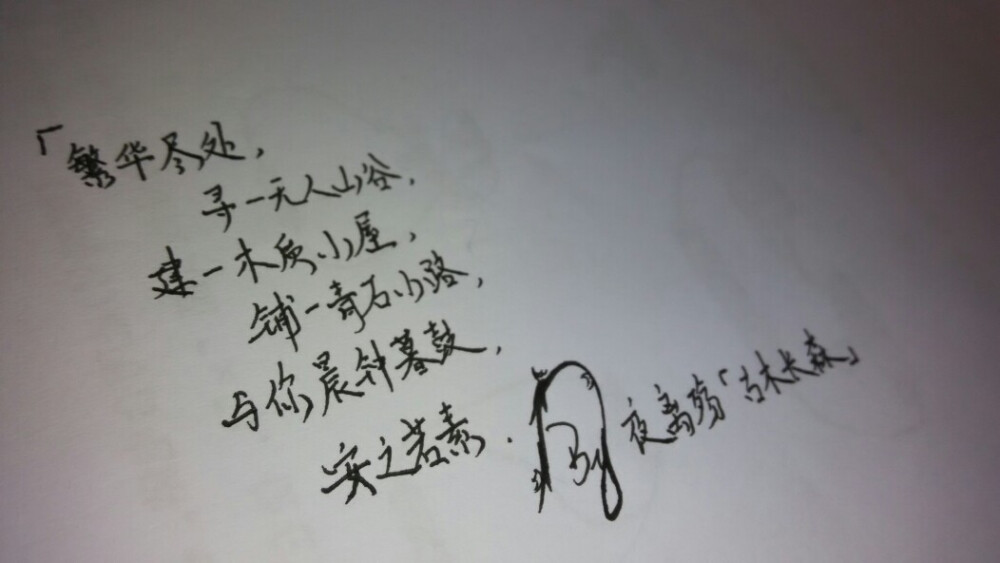 「繁华尽处，
寻一无人山谷，
建一木质小屋，
铺一青石小路，
与你晨钟暮鼓，
安之若素.
By 夜离殇「古木长森」